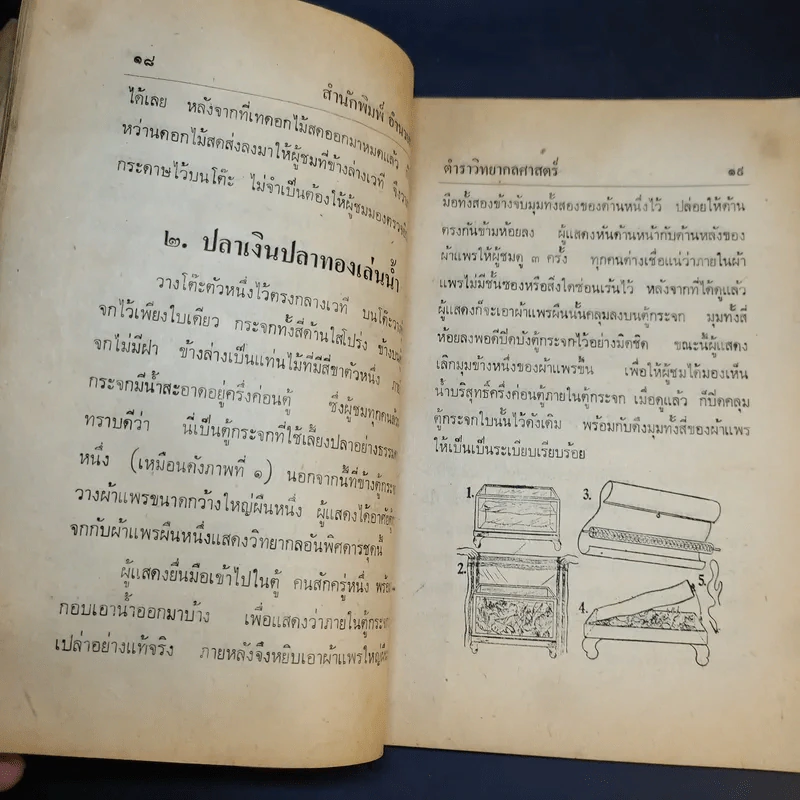 ๑๘
สำนักพิมพ์
ได้เลย หลังจากที่เทดอกไม้สดออกมาหมดแล้ว
หว่านดอกไม้สดส่งลงมาให้ผู้ชมที่ข้างล่างเวที
กระดาษไว้บนโต๊ะ ไม่จำเป็นต้องให้ผู้ชมมอง
๒. ปลาเงินปลาทองเล่นน้ำ
วางโต๊ะตัวหนึ่งไว้ตรงกลางเวที
จกไว้เพียงใบเดียว กระจกทั้งสี่ด้านใสโปร่ง
จกไม่มีฝา ข้างล่างเป็นแท่นไม้ที่มีสี่ขาตัวหนึ่ง
กระจกมีน้ำสะอาดอยู่ครึ่งค่อนตู้ ซึ่งผู้ชมทุกคน
ทราบดีว่า นี่เป็นตู้กระจกที่ใช้เลี้ยงปลาอย่าง
หนึ่ง (เหมือนดังภาพที่ ๑) นอกจากนี้ที่ข้างตู้
วางผ้าแพรขนาดกว้างใหญ่ผืนหนึ่ง ผู้แสดงได้อาศัย
จกกับผ้าแพรผืนหนึ่งแสดงวิทยากลอันพิศดารชุดนี้
ผู้แสดงยื่นมือเข้าไปในตู้ คนสักครู่หนึ่ง
กอบเอาน้ำออกมาบ้าง เพื่อแสดงว่าภายในตู้
เปล่าอย่างแท้จริง ภายหลังจึงหยิบเอาผ้าแพรใหญ่
ตำราวิทยากลศาสตร์ ๑๙
มือทั้งสองข้างจับมุมทั้งสองของด้านหนึ่งไว้ ปล่อยให้ด้าน
ตรงกันข้ามห้อยลง ผู้แสดงหันด้านหน้ากับด้านหลังของ
ผ้าแพรให้ผู้ชมดู ๓ ครั้ง ทุกคนต่างเชื่อแน่ว่าภายในผ้า
แพรไม่มีชั้นซองหรือสิ่งใดซ่อนเร้นไว้ หลังจากที่ได้ดูแล้ว
ผู้แสดงก็จะเอาผ้าแพรผืนนั้นคลุมลงบนตู้กระจก มุมทั้งสี่
ห้อยลงพอดีปิดบังตู้กระจกไว้อย่างมิดชิด ขณะนี้ผู้แสดง
เลิกมุมข้างหนึ่งของผ้าแพรขึ้น เพื่อให้ผู้ชมได้มองเห็น
น้ำบริสุทธิ์ครึ่งค่อนตู้ภายในตู้กระจก เมื่อดูแล้ว ก็ปิดคลุม
ตู้กระจกใบนั้นไว้ดังเดิม พร้อมกับดึงมุมทั้งสี่ของผ้าแพร
ให้เป็นเป็นระเบียบเรียบร้อย
1.
3.
2.
5.
4.